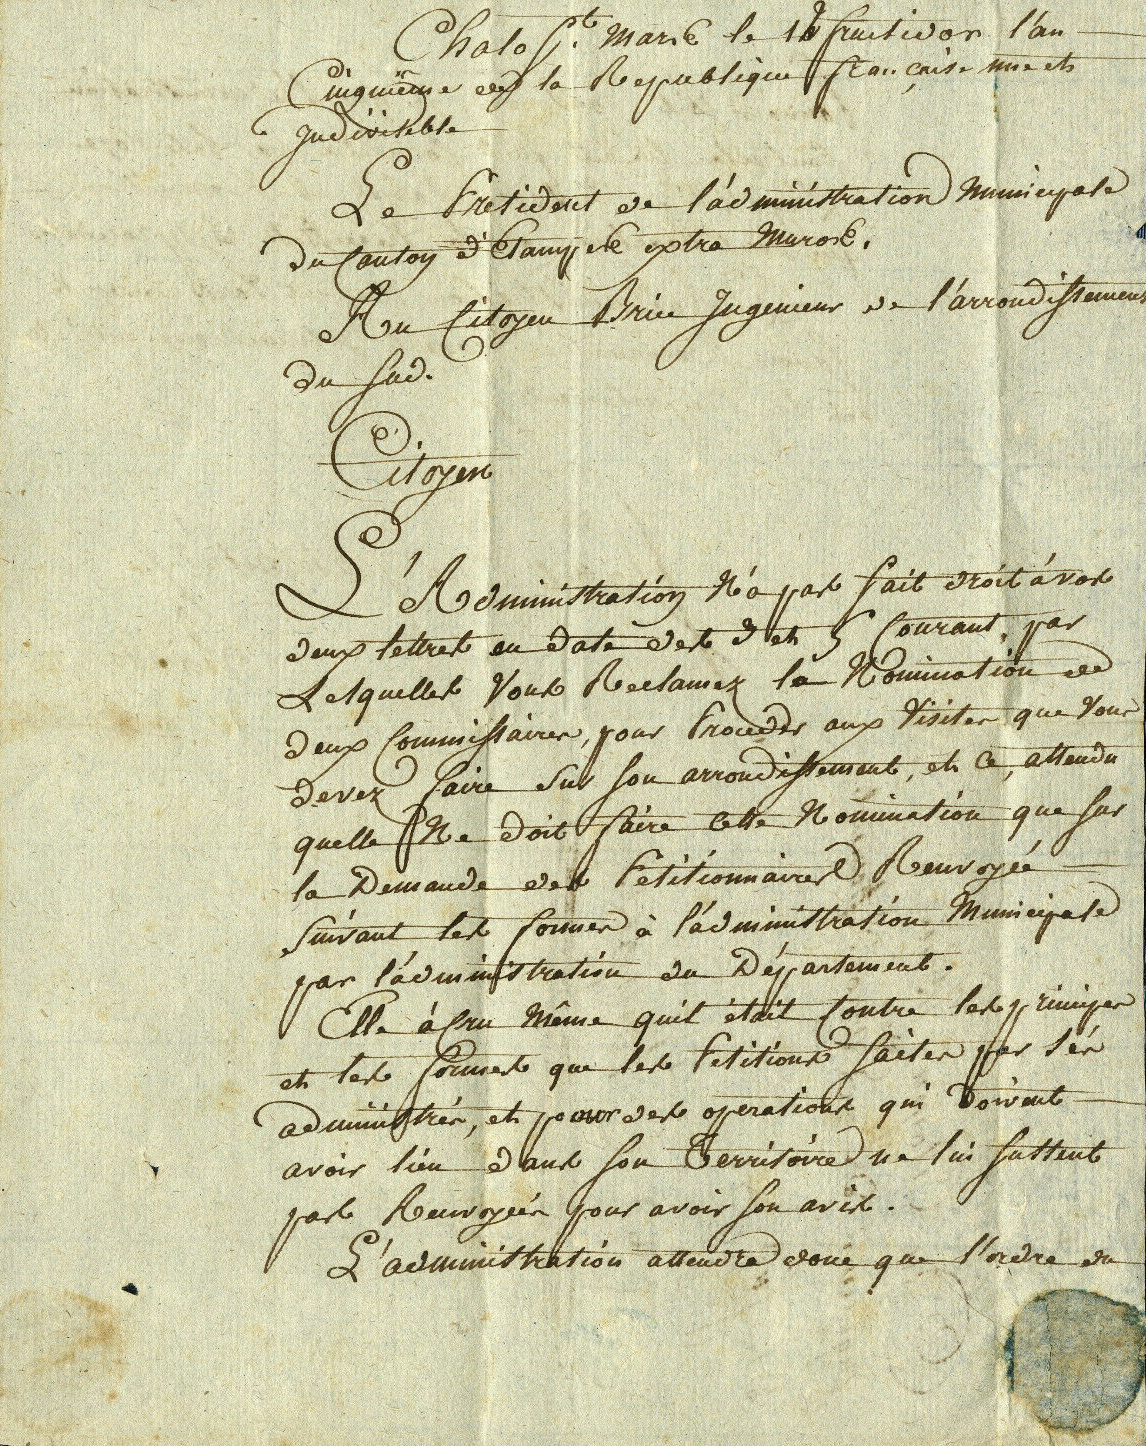 Chalo St. Mars le fructidor l'an
Cinquiéme de la Republique française une et
Indivisible
Le Président de l'administration Municipale
du Canton d'Etampes extra Muros.
Au Citoyen Brice Ingenieur de l'arrondissement
du Sud.
Citoyen
L'Administration N'a pas fait droit à vos
deux lettres en date des 3 et 5 Courant, par
Lesquelles Vous Reclamez la Nomination de
deux Commissaires, pour Proceder aux Visites que Vous
devez faire sur son arrondissement, et ce, attendu
quelle Ne doit faire cette Nomination que sur
la Demande des Pétitionnaires Renvoyée
suivant les formes à l'administration Municipale
par l'administration du Département.
Elle à Cru Même qu'il était Contre les principes
et les formes que les Petitions faites par ses
administrés, et pour des operations qui doivent
avoir lieu dans son Territoire ne lui fussent
pas Renvoyées pour avoir son avis.
L'administration attendra donc que l'ordre du